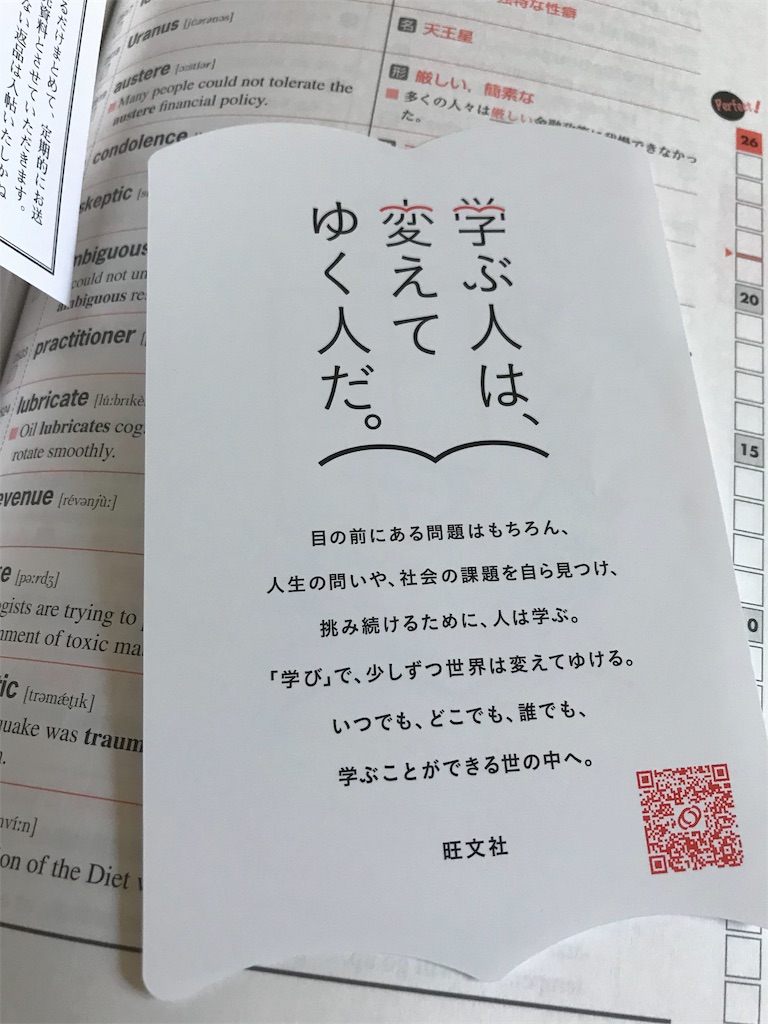 学ぶ人は、
変えて
ゆく人だ。
目の前にある問題はもちろん、
人生の問いや、社会の課題を自ら見つけ、
挑み続けるために、人は学ぶ。
「学び」で、少しずつ世界は変えてゆける。
いつでも、どこでも、誰でも、
学ぶことができる世の中へ。
旺文社
るだけまとめて、定期的にお送
資料とさせていただきます。
ない返品は入帖いたしかね
Uranus
austere
Many people could not tolerate the
austere financial policy.
condolence
skeptic
mbiguous
could not un
ambiguous re
practitioner
lubricate [lú:brikè
Oil lubricates cog
rotate smoothly.
evenue [révənjù:]
e [pə:rdʒ]
gists are trying to
nment of toxic ma
ic [trəmǽtɪk]
uake was traum
ví:n]
on of the Diet
独特な性癖
名 天王星
形 厳しい，簡素な
多くの人々は厳しい金融政策に我慢できなかっ
た。
Perfect!
26
20
15
0